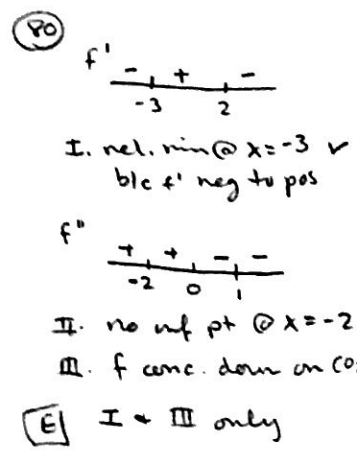 80
f'
- + -
-3 2
I. rel. min @ x = -3 ✓
b/c f' neg to pos
f"
+ + - -
-2 0 1
II. no inf pt @ x = -2
III. f conc. down on (0,
E I & III only